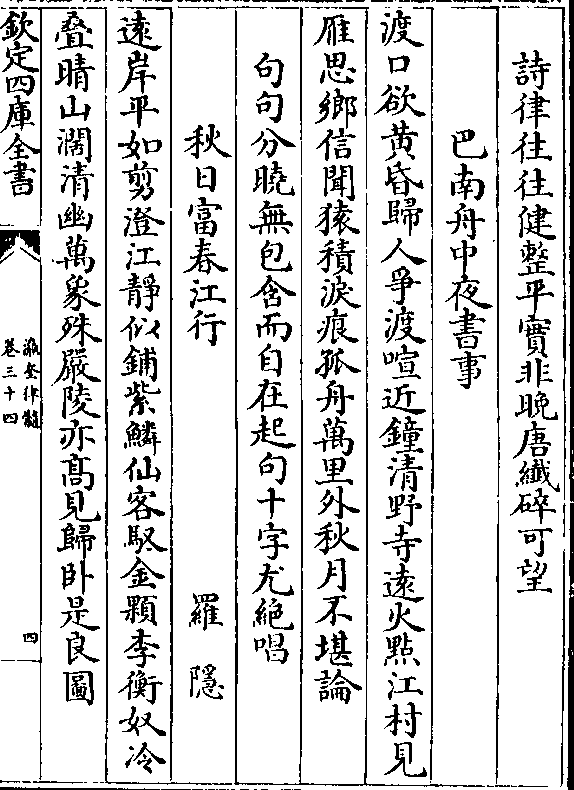 詩律往往健整平實非晚唐纖碎可望
巴南舟中夜書事
渡口欲黄昏歸人爭渡喧近鐘清野寺遠火㸃江村見
雁思鄉信聞猿積淚痕孤舟萬里外秋月不堪論
句句分曉無包含而自在起句十字尤絶唱
秋日富春江行 羅隱
遠岸平如剪澄江靜似鋪紫鱗仙客馭金顆李衡奴冷
疊晴山濶清幽萬象殊嚴陵亦髙見歸卧是良圖
欽定四庫全書
瀛奎律髓
卷三十四
四